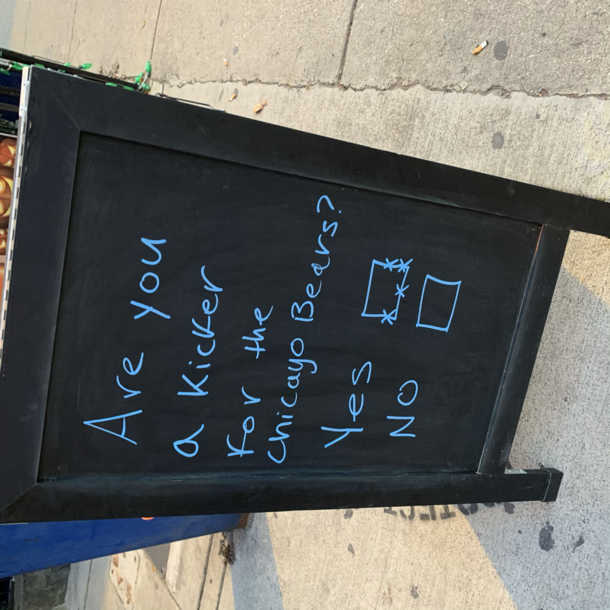 Are you
a Kicker
for the
Chicago Bears?
Yes
NO